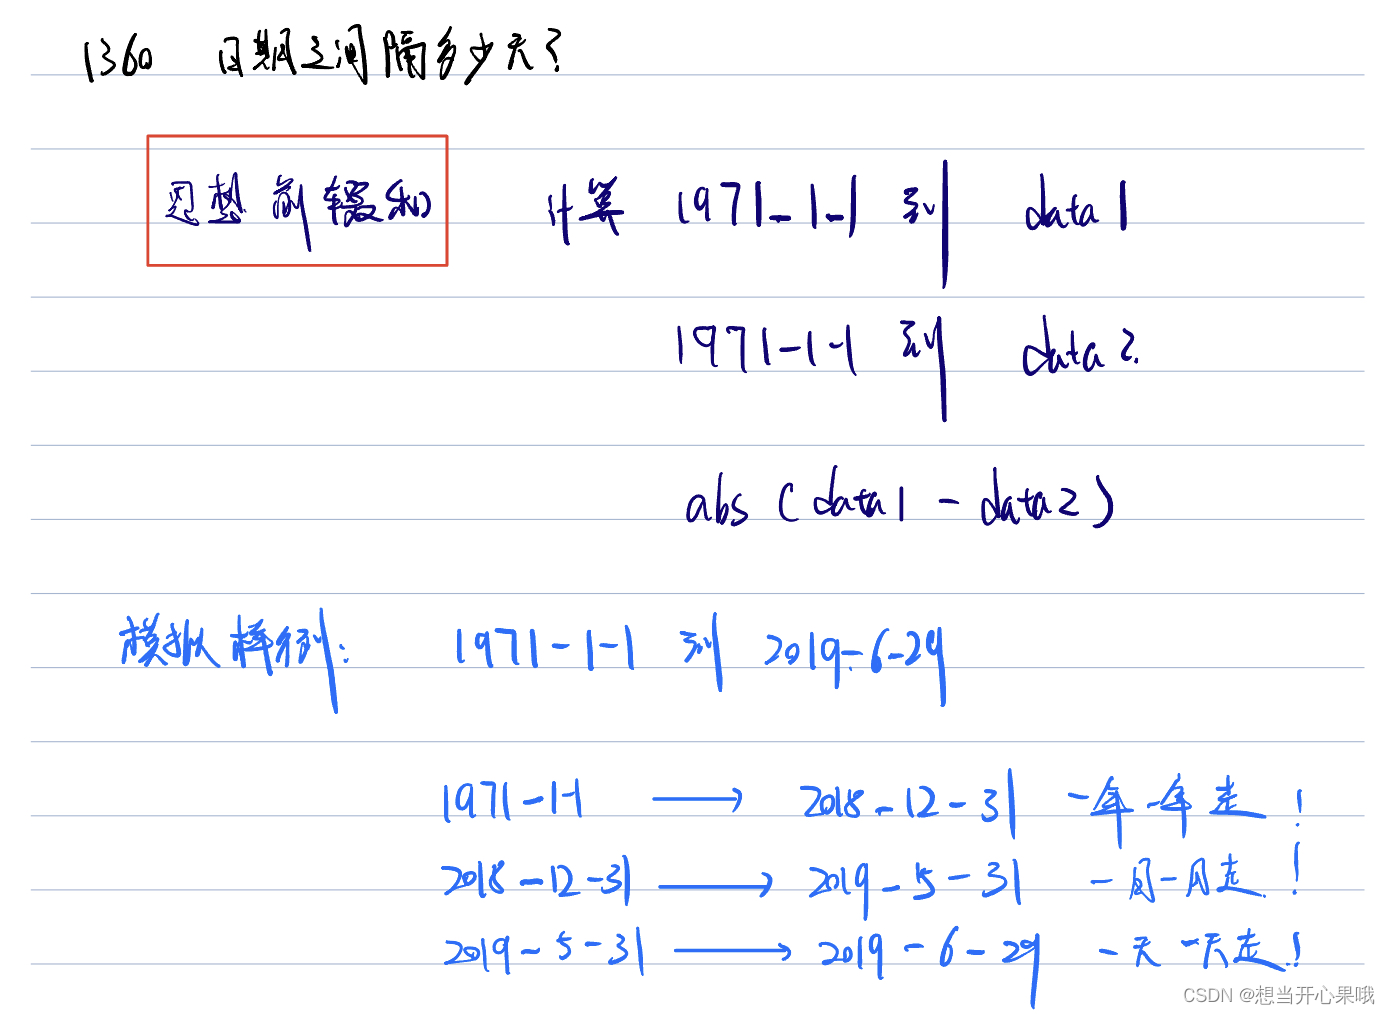 1360 日期之间隔多少天?
思想 前缀和 计算 1971-1-1 到 data1
1971-1-1 到 data2.
abs (data1 - data2)
模拟样例: 1971-1-1 到 2019-6-29
1971-1-1 → 2018-12-31 一年一年走!
2018-12-31 → 2019-5-31 一月一月走!
2019-5-31 → 2019-6-29 一天一天走!
CSDN @想当开心果哦